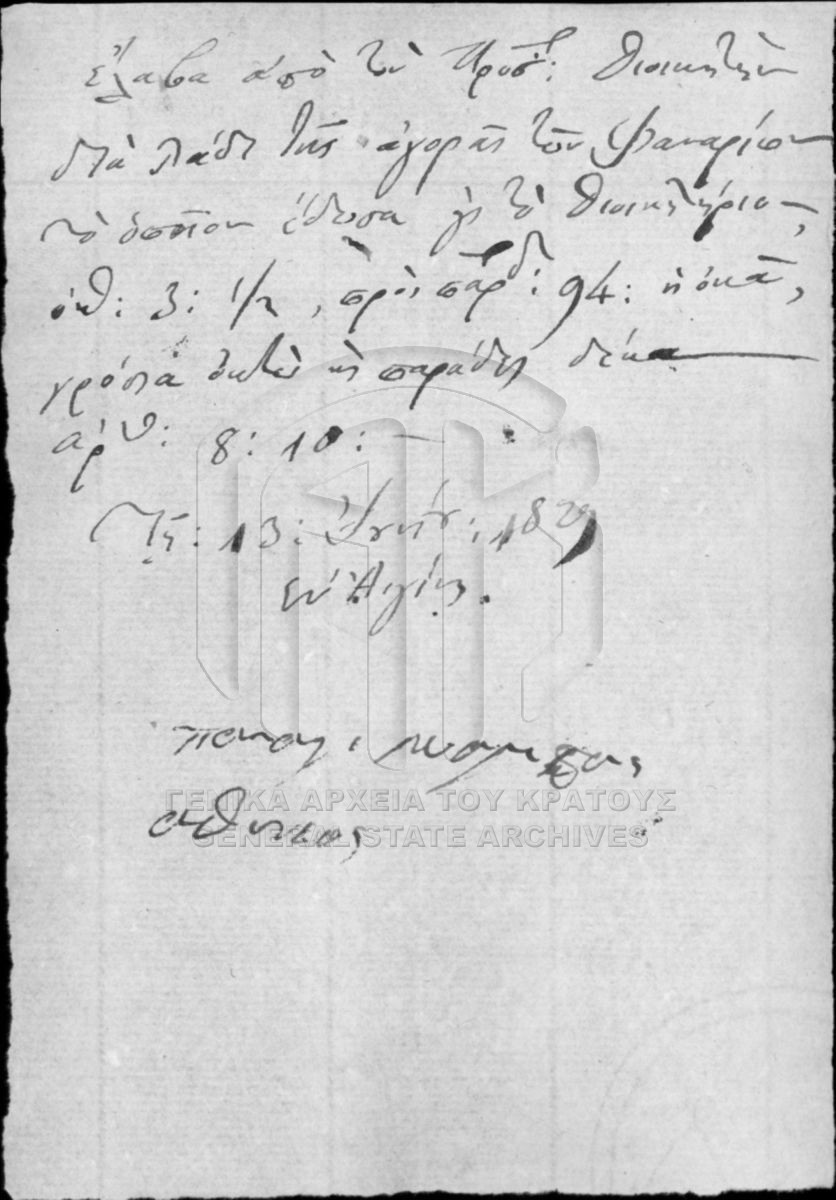 ἔλαβα ἀπὸ τὸν Προσ: Διοικητὴν
διὰ λάδι τῆς ἀγορᾶς τῶν Φαναρίων
τὸ ὁποῖον ἔδοσα εἰς τὸ Διοικητήριον,
ὀκ: 3: 1/2, πρὸς παρδ: 94: ἡ ὀκᾶ,
γρόσια ὀκτὼ καὶ παράδες δέκα
ἀρθ: 8: 10: —
Τῇ: 13: : 1829
ἐν Αἰγίνῃ.
ΓΕΝΙΚΑ ΑΡΧΕΙΑ ΤΟΥ ΚΡΑΤΟΥΣ
GENERAL STATE ARCHIVES